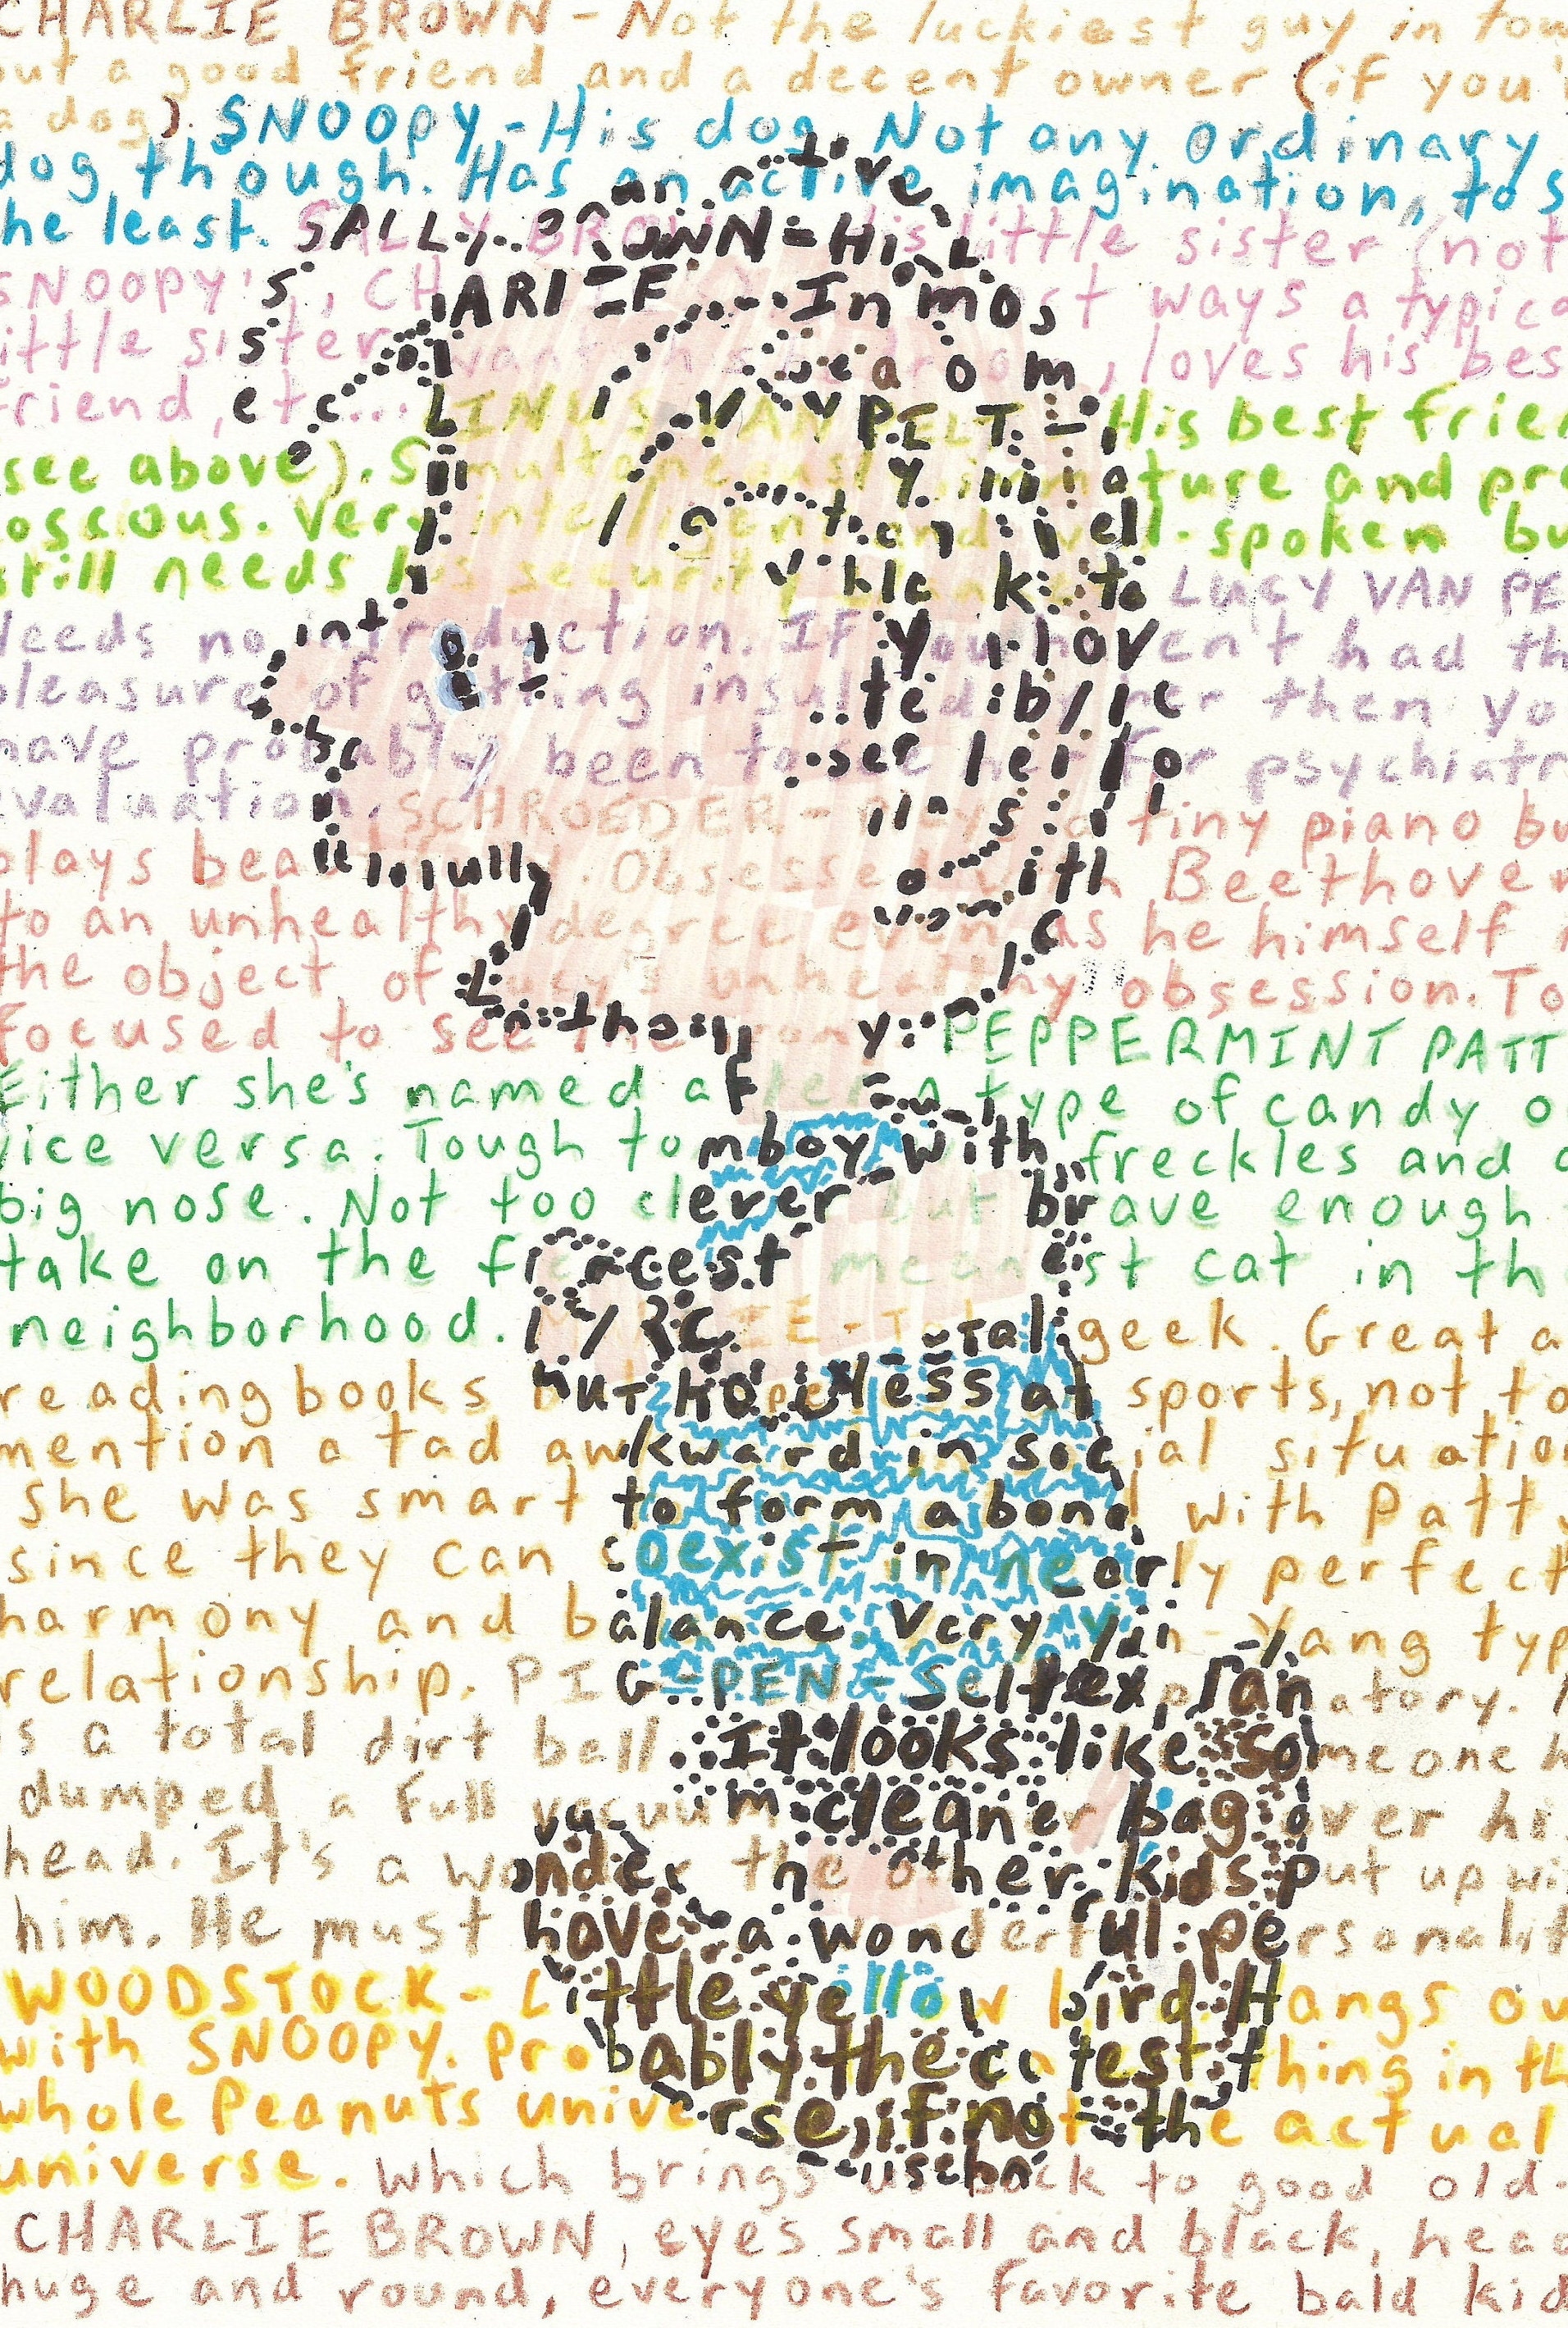 CHARLIE BROWN - Not the luckiest guy in tow
but a good friend and a decent owner (if you'
a dog). SNOOPY - His dog. Not any ordinary
dog though. Has an active imagination, to s
the least. SALLY BROWN - His little sister (not
SNOOPY's, CHARLIE's). In most ways a typica
little sister, wants his bedroom, loves his bes
friend, etc... LINUS VAN PELT - His best frien
(see above). Simultaneously immature and pre
osscous. Very intelligent and well-spoken bu
still needs his security blanket. LUCY VAN PE
Needs no introduction. If you haven't had th
pleasure of getting insulted by her then yo
have probably been to see her for psychiatr
evaluation. SCHROEDER - Plays a tiny piano bu
plays beautifully. Obsessed with Beethoven
to an unhealthy degree even as he himself
the object of Lucy's unhealthy obsession. To
focused to see the irony. PEPPERMINT PATT
Either she's named after a type of candy o
vice versa. Tough tomboy with freckles and a
big nose. Not too clever but brave enough
take on the fiercest meanest cat in th
neighborhood. MARCIE - Total geek. Great a
reading books but hopeless at sports, not to
mention a tad awkward in social situation
She was smart to form a bond with Patty
since they can coexist in nearly perfect
harmony and balance. Very yin-yang typ
relationship. PIG-PEN - Self explanatory.
is a total dirt ball. It looks like someone h
dumped a full vacuum cleaner bag over hi
head. It's a wonder the other kids put up wi
him. He must have a wonderful personalit
WOODSTOCK - Little yellow bird. Hangs ou
with SNOOPY. Probably the cutest thing in th
whole Peanuts universe, if not the actual
universe. Which brings us back to good old
CHARLIE BROWN, eyes small and black, head
huge and round, everyone's favorite bald kid